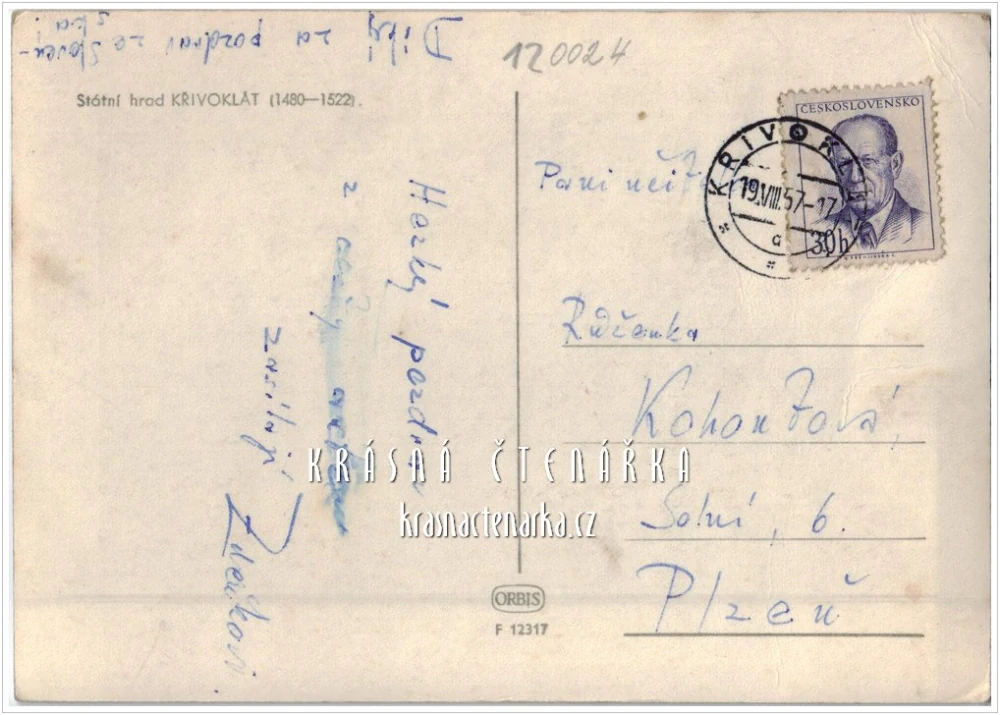 Díky za pozdrav ze Sloven-
ska!
120024
Státní hrad KŘIVOKLÁT (1480—1522).
ČESKOSLOVENSKO
30h
KŘIVOKLÁT
19.VIII.57-17
a
Hezký pozdrav
z
zasílají
Zdeňkovi
Paní učit
Růženka
Kohoutová,
Solní, 6.
Plzeň
KRÁSNÁ ČTENÁŘKA
krasnactenarka.cz
ORBIS
F 12317